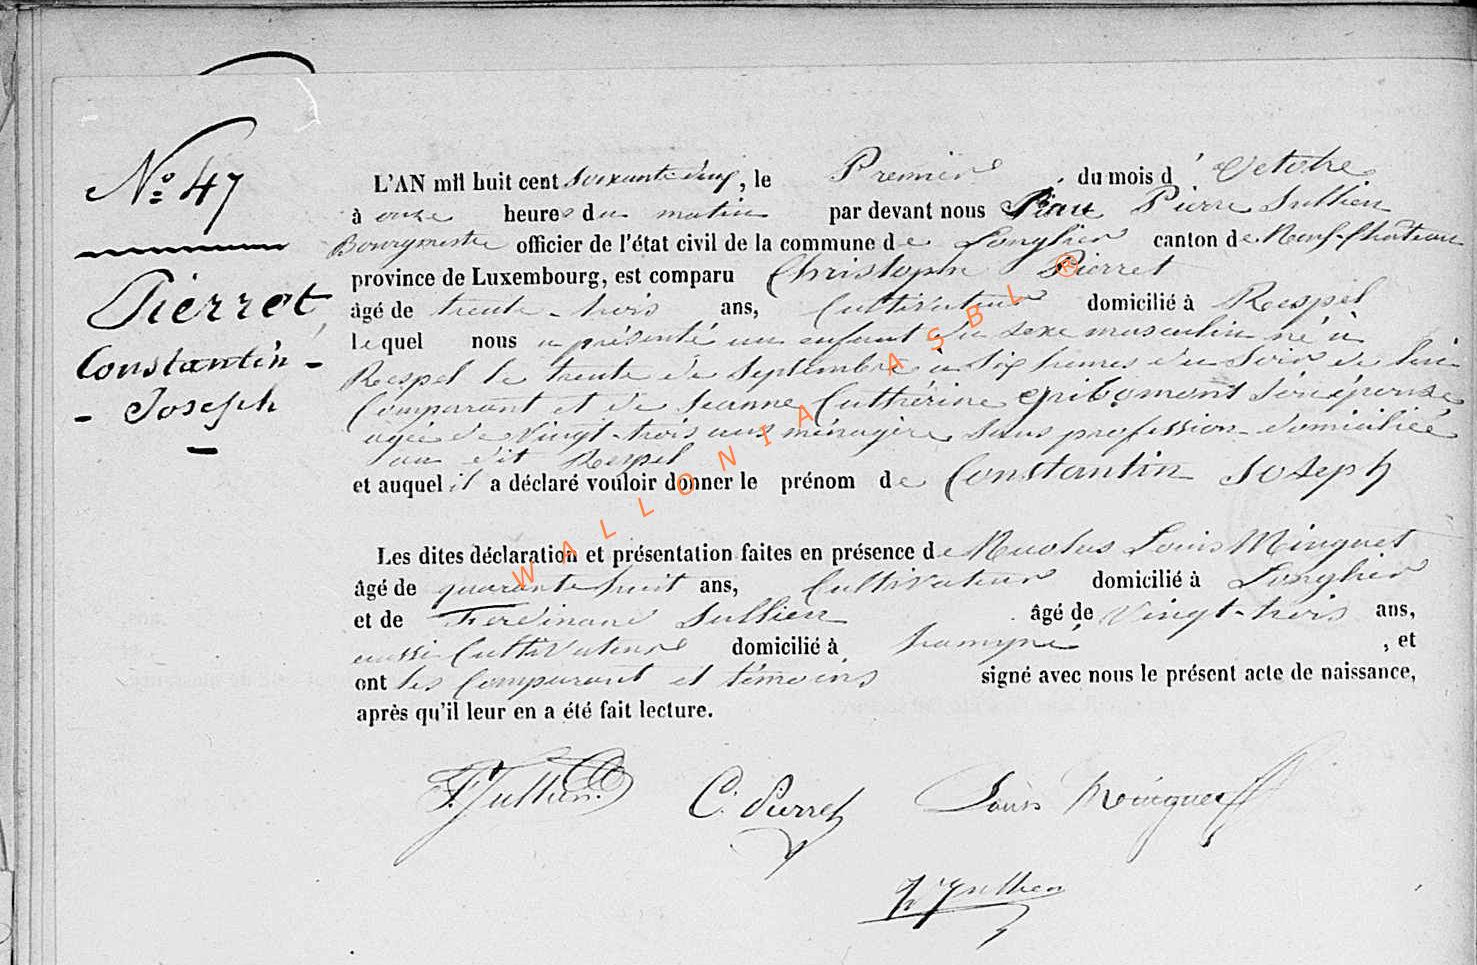 N° 47
Pierret
Constantin -
- Joseph
L'AN mil huit cent soixante cinq, le Premier du mois d'Octobre
à onze heures du matin par devant nous Pierre Jullien
Bourgmestre officier de l'état civil de la commune de Longlier canton de Neuf-château
province de Luxembourg, est comparu Christophe Pierret
âgé de trente-trois ans, Cultivateur domicilié à Respel
lequel nous a présenté un enfant du sexe masculin né à
Respel le trente de Septembre à six heures du Soir de lui
Comparant et de Jeanne Cathérine Gribomont son épouse
agée de Vingt-trois ans ménagère sans profession domiciliée
au dit Respel
et auquel il a déclaré vouloir donner le prénom de Constantin Joseph
Les dites déclaration et présentation faites en présence de Nicolas Louis Minguet
âgé de quarante huit ans, Cultivateur domicilié à Longlier
et de Ferdinand Jullien âgé de Vingt-trois ans,
aussi Cultivateur domicilié à , et
ont les Comparant et témoins signé avec nous le présent acte de naissance,
après qu'il leur en a été fait lecture.
F. Jullien C. Pierret Louis Minguet
Jullien
WALLONIA ASBL ®